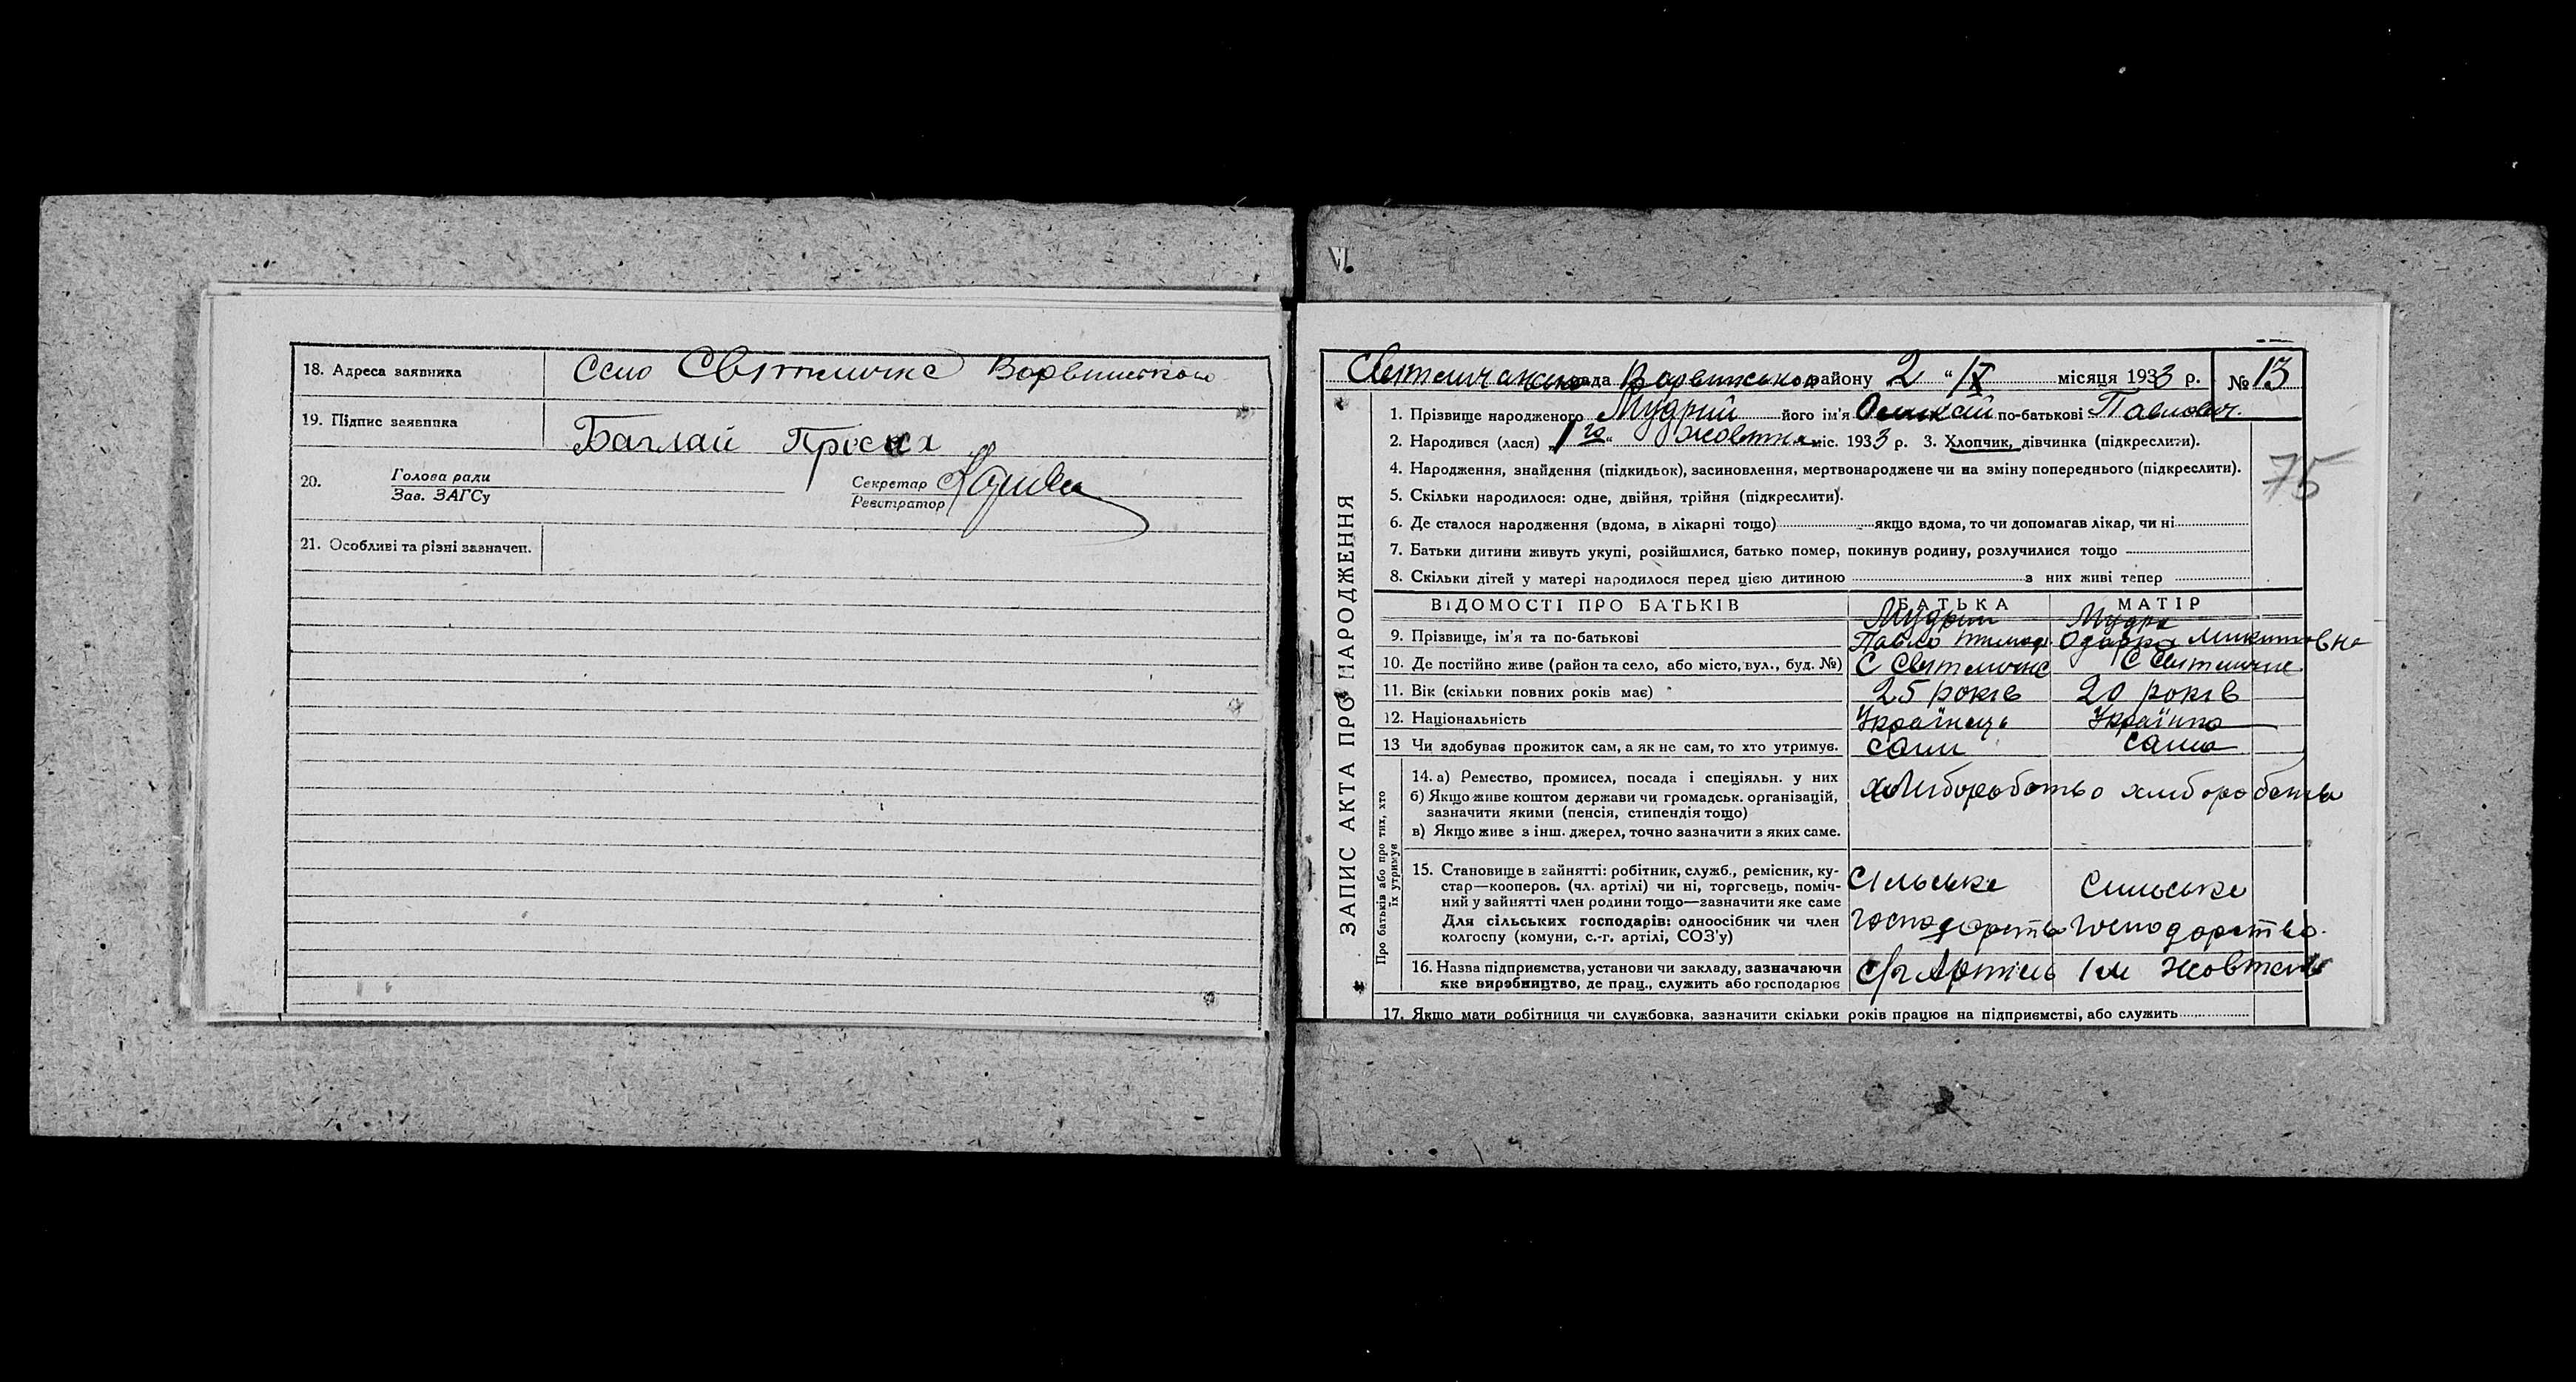 18. Адреса заявника Село Світличне Варвинського
19. Підпис заявника Баглай
20. Голова ради
Зав. ЗАГСу
Секретар
Реєстратор
21. Особливі та різні зазначен.
VI.
Світличанська рада Варвинського району 2 " IX місяця 1933 р. № 13
1. Прізвище народженого Мудрий його ім'я Олексій по-батькові Павлович
2. Народився (лася) „1го“ жовтня міс. 1933 р. 3. Хлопчик, дівчинка (підкреслити).
4. Народження, знайдення (підкидьок), засиновлення, мертвонароджене чи на зміну попереднього (підкреслити).
75
5. Скільки народилося: одне, двійня, трійня (підкреслити).
6. Де сталося народження (вдома, в лікарні тощо) якщо вдома, то чи допомагав лікар, чи ні
7. Батьки дитини живуть укупі, розійшлися, батько помер, покинув родину, розлучилися тощо
8. Скільки дітей у матері народилося перед цією дитиною з них живі тепер
ЗАПИС АКТА ПРО НАРОДЖЕННЯ
ВІДОМОСТІ ПРО БАТЬКІВ БАТЬКА МАТІР
9. Прізвище, ім'я та по-батькові Мудрий Павло Тимоф. Мудра Одарка Микитовна
10. Де постійно живе (район та село, або місто, вул., буд. №) С Світличне С Світличне
11. Вік (скільки повних років має) 25 років 20 років
12. Національність Українець Українка
13 Чи здобуває прожиток сам, а як не сам, то хто утримує. сами сама
Про батьків або про тих, хто їх утримує
14. а) Ремество, промисел, посада і спеціяльн. у них
б) Якщо живе коштом держави чи громадськ. організацій,
зазначити якими (пенсія, стипендія тощо)
в) Якщо живе з інш. джерел, точно зазначити з яких саме.
хліборобство хлиборобство
15. Становище в зайнятті: робітник, служб., ремісник, ку-
стар—кооперов. (чл. артілі) чи ні, торговець, поміч-
ний у зайнятті член родини тощо—зазначити яке саме
Для сільських господарів: одноосібник чи член
колгоспу (комуни, с.-г. артілі, СОЗ'у)
Сільське Сильське
господарство господарство
16. Назва підприємства, установи чи закладу, зазначаючи
яке виробництво, де прац., служить або господарює
с/г Артіль Ім Жовтень
17. Якщо мати робітниця чи службовка, зазначити скільки років працює на підприємстві, або служить